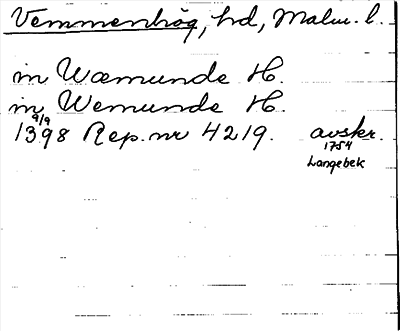 Vemmenhög, hd, Malm. l.
in Wæmunde H.
in Wemunde H.
9/9
1398 Rep. nr 4219. avskr.
1754
Langebek